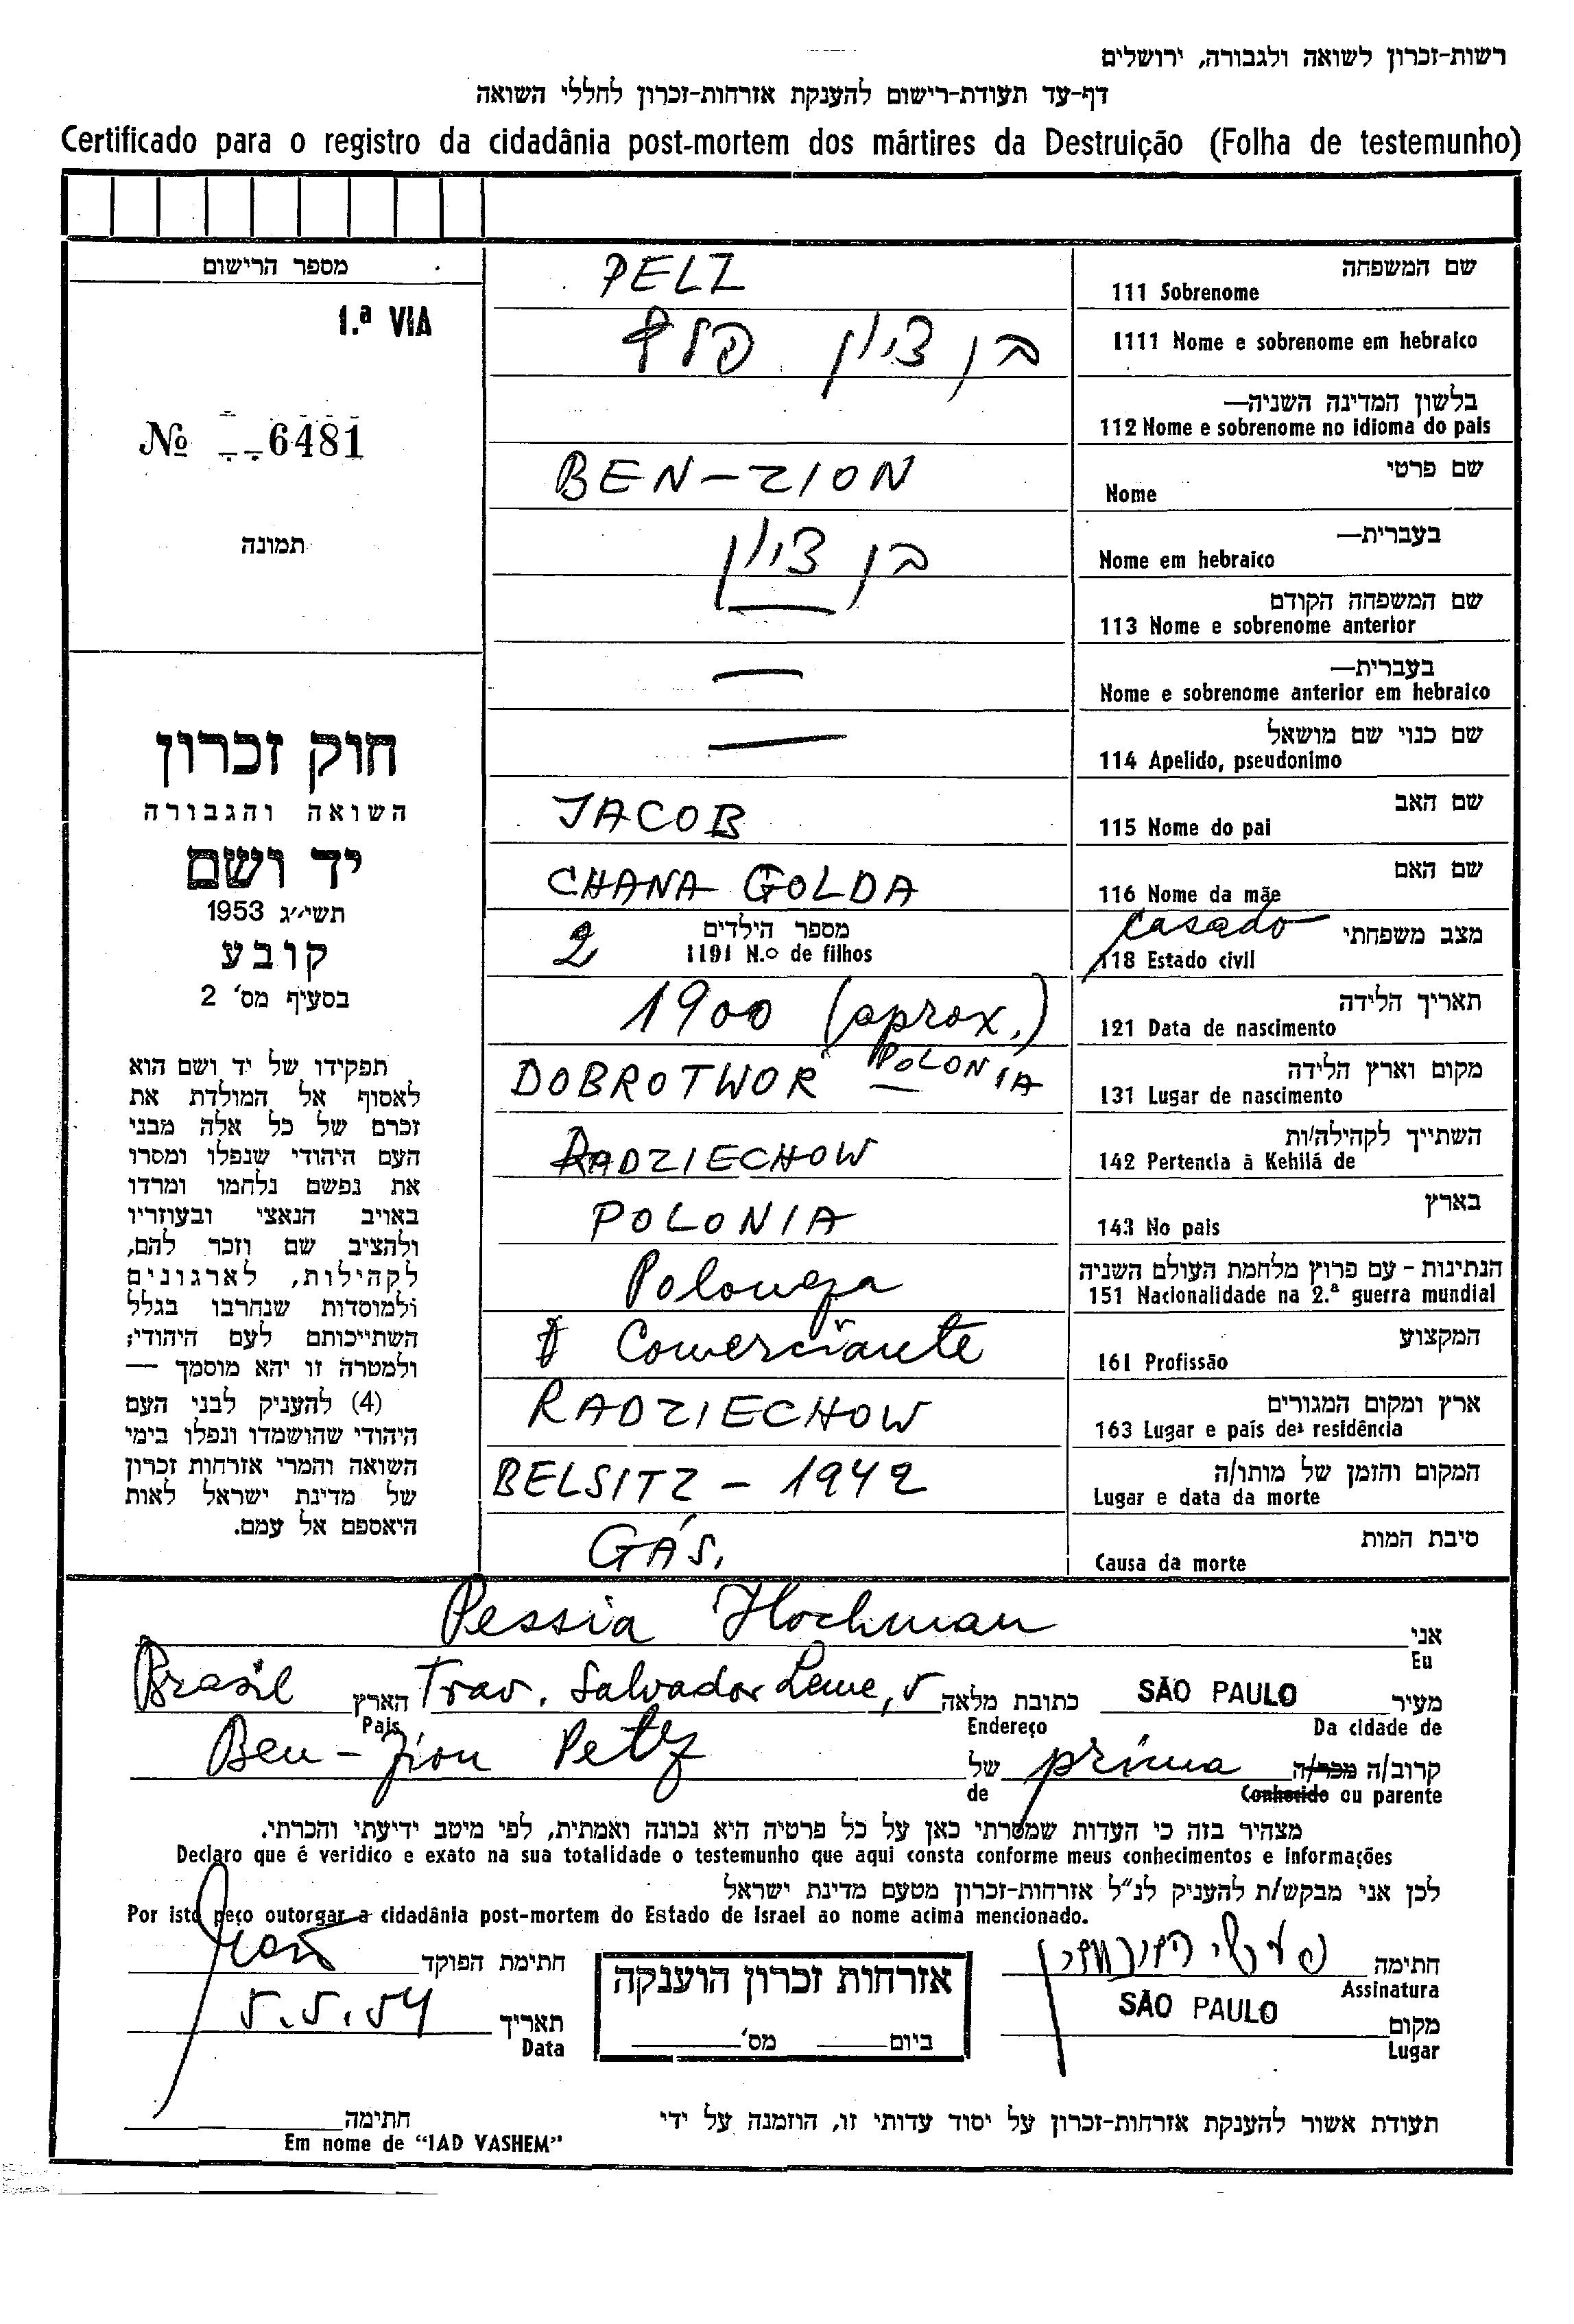 רשות-זכרון לשואה ולגבורה, ירושלים
דף-עד תעודת-רישום להענקת אזרחות-זכרון לחללי השואה
Certificado para o registro da cidadânia post-mortem dos mártires da Destruição (Folha de testemunho)
מספר הרישום
1.ª VIA
№ 6481
תמונה
חוק זכרון
השואה והגבורה
יד ושם
תשי״ג 1953
קובע
בסעיף מס' 2
תפקידו של יד ושם הוא
לאסוף אל המולדת את
זכרם של כל אלה מבני
העם היהודי שנפלו ומסרו
את נפשם נלחמו ומרדו
באויב הנאצי ובעוזריו
ולהציב שם וזכר להם,
לקהילות, לארגונים
ולמוסדות שנחרבו בגלל
השתייכותם לעם היהודי;
ולמטרה זו יהא מוסמך —
(4) להעניק לבני העם
היהודי שהושמדו ונפלו בימי
השואה והמרי אזרחות זכרון
של מדינת ישראל לאות
היאספם אל עמם.
שם המשפחה
111 Sobrenome PELZ
1111 Nome e sobrenome em hebraico בן ציון פלץ
בלשון המדינה השניה—
112 Nome e sobrenome no idioma do pais
שם פרטי
Nome BEN-ZION
בעברית—
Nome em hebraico בן ציון
שם המשפחה הקודם
113 Nome e sobrenome anterior —
בעברית—
Nome e sobrenome anterior em hebraico —
שם כנוי שם מושאל
114 Apelido, pseudonimo —
שם האב
115 Nome do pai JACOB
שם האם
116 Nome da mãe CHANA GOLDA
מצב משפחתי casado
118 Estado civil
מספר הילדים
1191 N.º de filhos 2
תאריך הלידה
121 Data de nascimento 1900 (aprox.)
מקום וארץ הלידה
131 Lugar de nascimento DOBROTWOR — POLONIA
השתייך לקהילה/ות
142 Pertencia à Kehilá de RADZIECHOW
בארץ
143 No pais POLONIA
הנתינות - עם פרוץ מלחמת העולם השניה
151 Nacionalidade na 2.ª guerra mundial Poloneza
המקצוע
161 Profissão Comerciante
ארץ ומקום המגורים
163 Lugar e país de residência RADZIECHOW
המקום והזמן של מותו/ה
Lugar e data da morte BELSITZ - 1942
סיבת המות
Causa da morte GÁS.
אני Pessia Hochman
Eu
מעיר SÃO PAULO כתובת מלאה Trav. Salvador Leme, 5 הארץ Brasil
Da cidade de Endereço Pais
קרוב/ה מכר/ה prima של Ben-Zion Peltz
Conhecido ou parente de
מצהיר בזה כי העדות שמסרתי כאן על כל פרטיה היא נכונה ואמתית, לפי מיטב ידיעתי והכרתי.
Declaro que é veridico e exato na sua totalidade o testemunho que aqui consta conforme meus conhecimentos e informações
לכן אני מבקש/ת להעניק לנ״ל אזרחות-זכרון מטעם מדינת ישראל
Por isto peço outorgar a cidadânia post-mortem do Estado de Israel ao nome acima mencionado.
חתימה
Assinatura
אזרחות זכרון הוענקה
ביום מס'
חתימת הפוקד
מקום SÃO PAULO
Lugar
תאריך 5.5.54
Data
תעודת אשור להענקת אזרחות-זכרון על יסוד עדותי זו, הוזמנה על ידי
חתימה
Em nome de "IAD VASHEM"